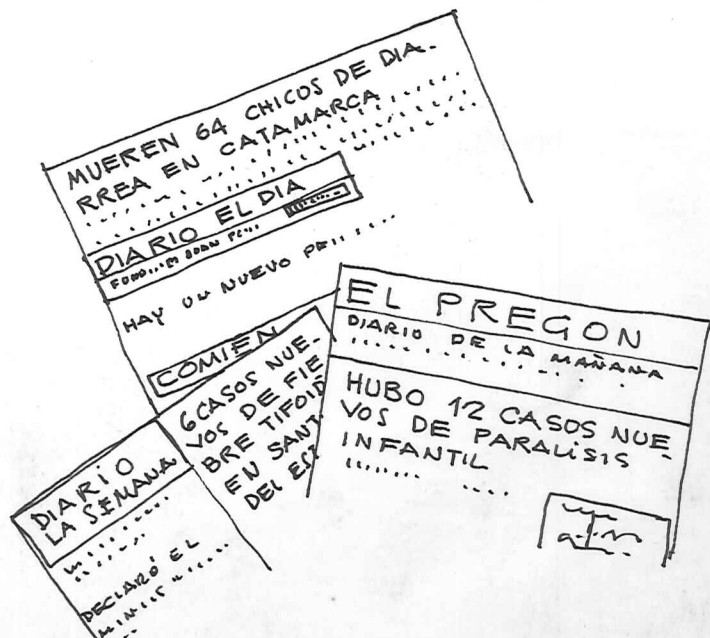 MUEREN 64 CHICOS DE DIA-
RREA EN CATAMARCA
DIARIO EL DIA
HAY UN NUEVO
COMIEN
EL PREGON
DIARIO DE LA MAÑANA
HUBO 12 CASOS NUE-
VOS DE PARALISIS
INFANTIL
6 CASOS NUE-
VOS DE FIE
BRE TIFOID
EN SANT
DEL
DIARIO
LA SEMANA
DECLARÓ EL
MINIS